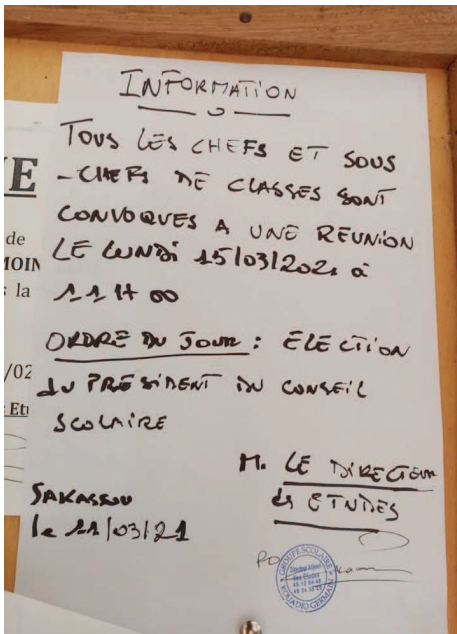 INFORMATION
TOUS LES CHEFS ET SOUS
-CHEFS DE CLASSES SONT
CONVOQUES A UNE REUNION
LE LUNDI 15/03/2021 à
11H00
ORDRE DU JOUR : ELECTION
du PRESIDENT DU CONSEIL
SCOLAIRE
M. LE DIRECTEUR
des ETUDES
SAKASSOU
le 11/03/21
PO
GROUPE SCOLAIRE
KOUADIO GERMAIN
des Etudes
E
de
MOIN
s la
/02
Etu